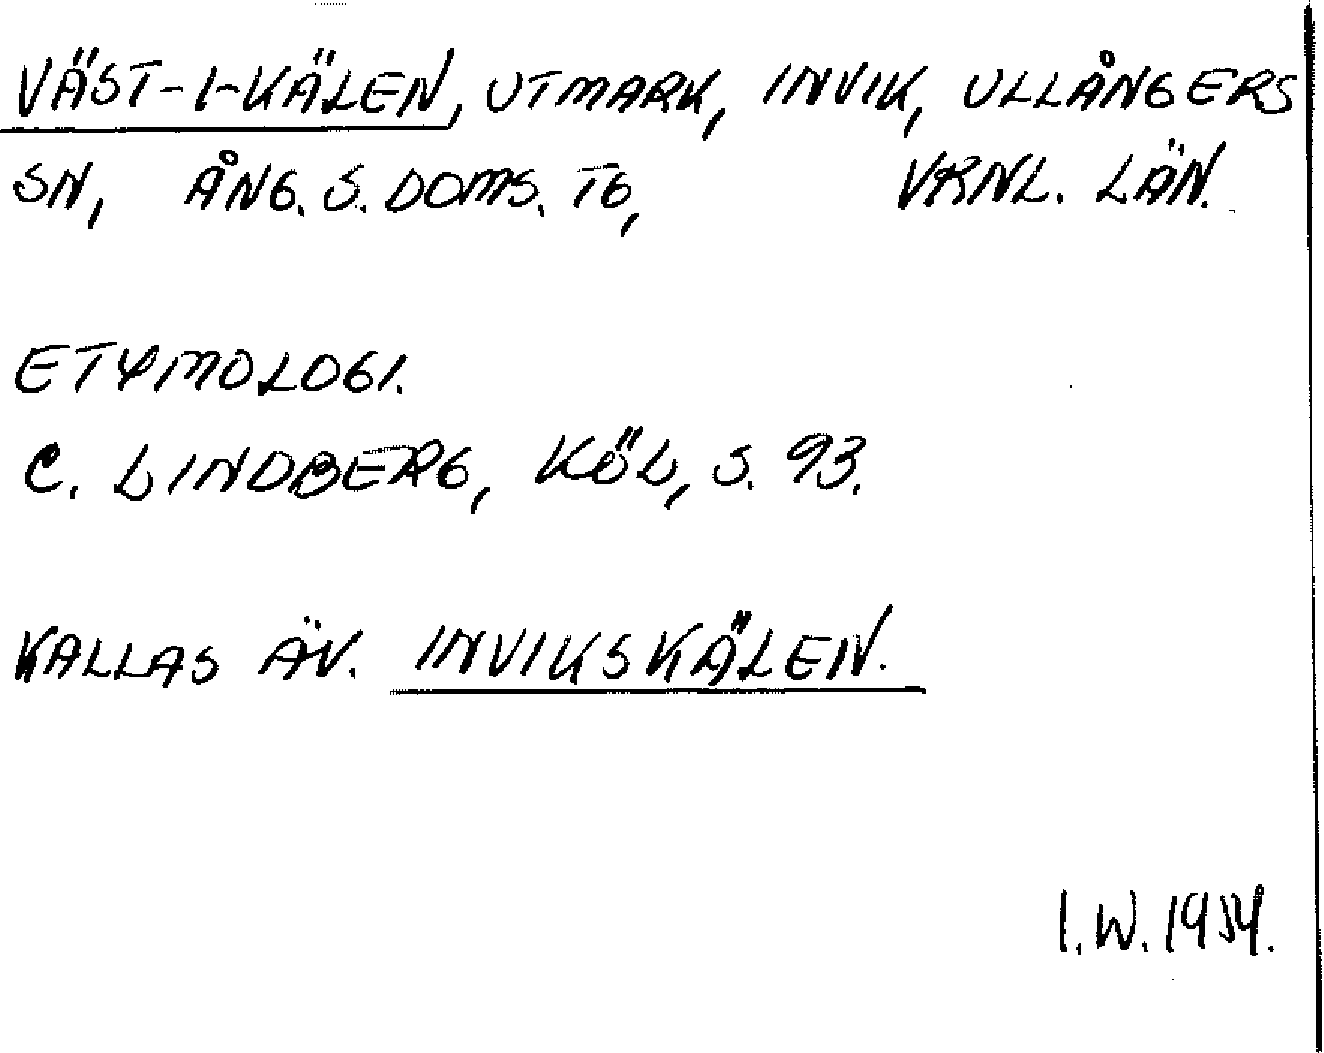 VÄST-I-KÄLEN, UTMARK, INVIK, ULLÅNGERS
SN, ÅNG. S. DOMS. TG, VRNL. LÄN.
ETYMOLOGI.
C. LINDBERG, KÖL, S. 93.
KALLAS ÄV. INVIKSKÄLEN.
I.W. 1954.